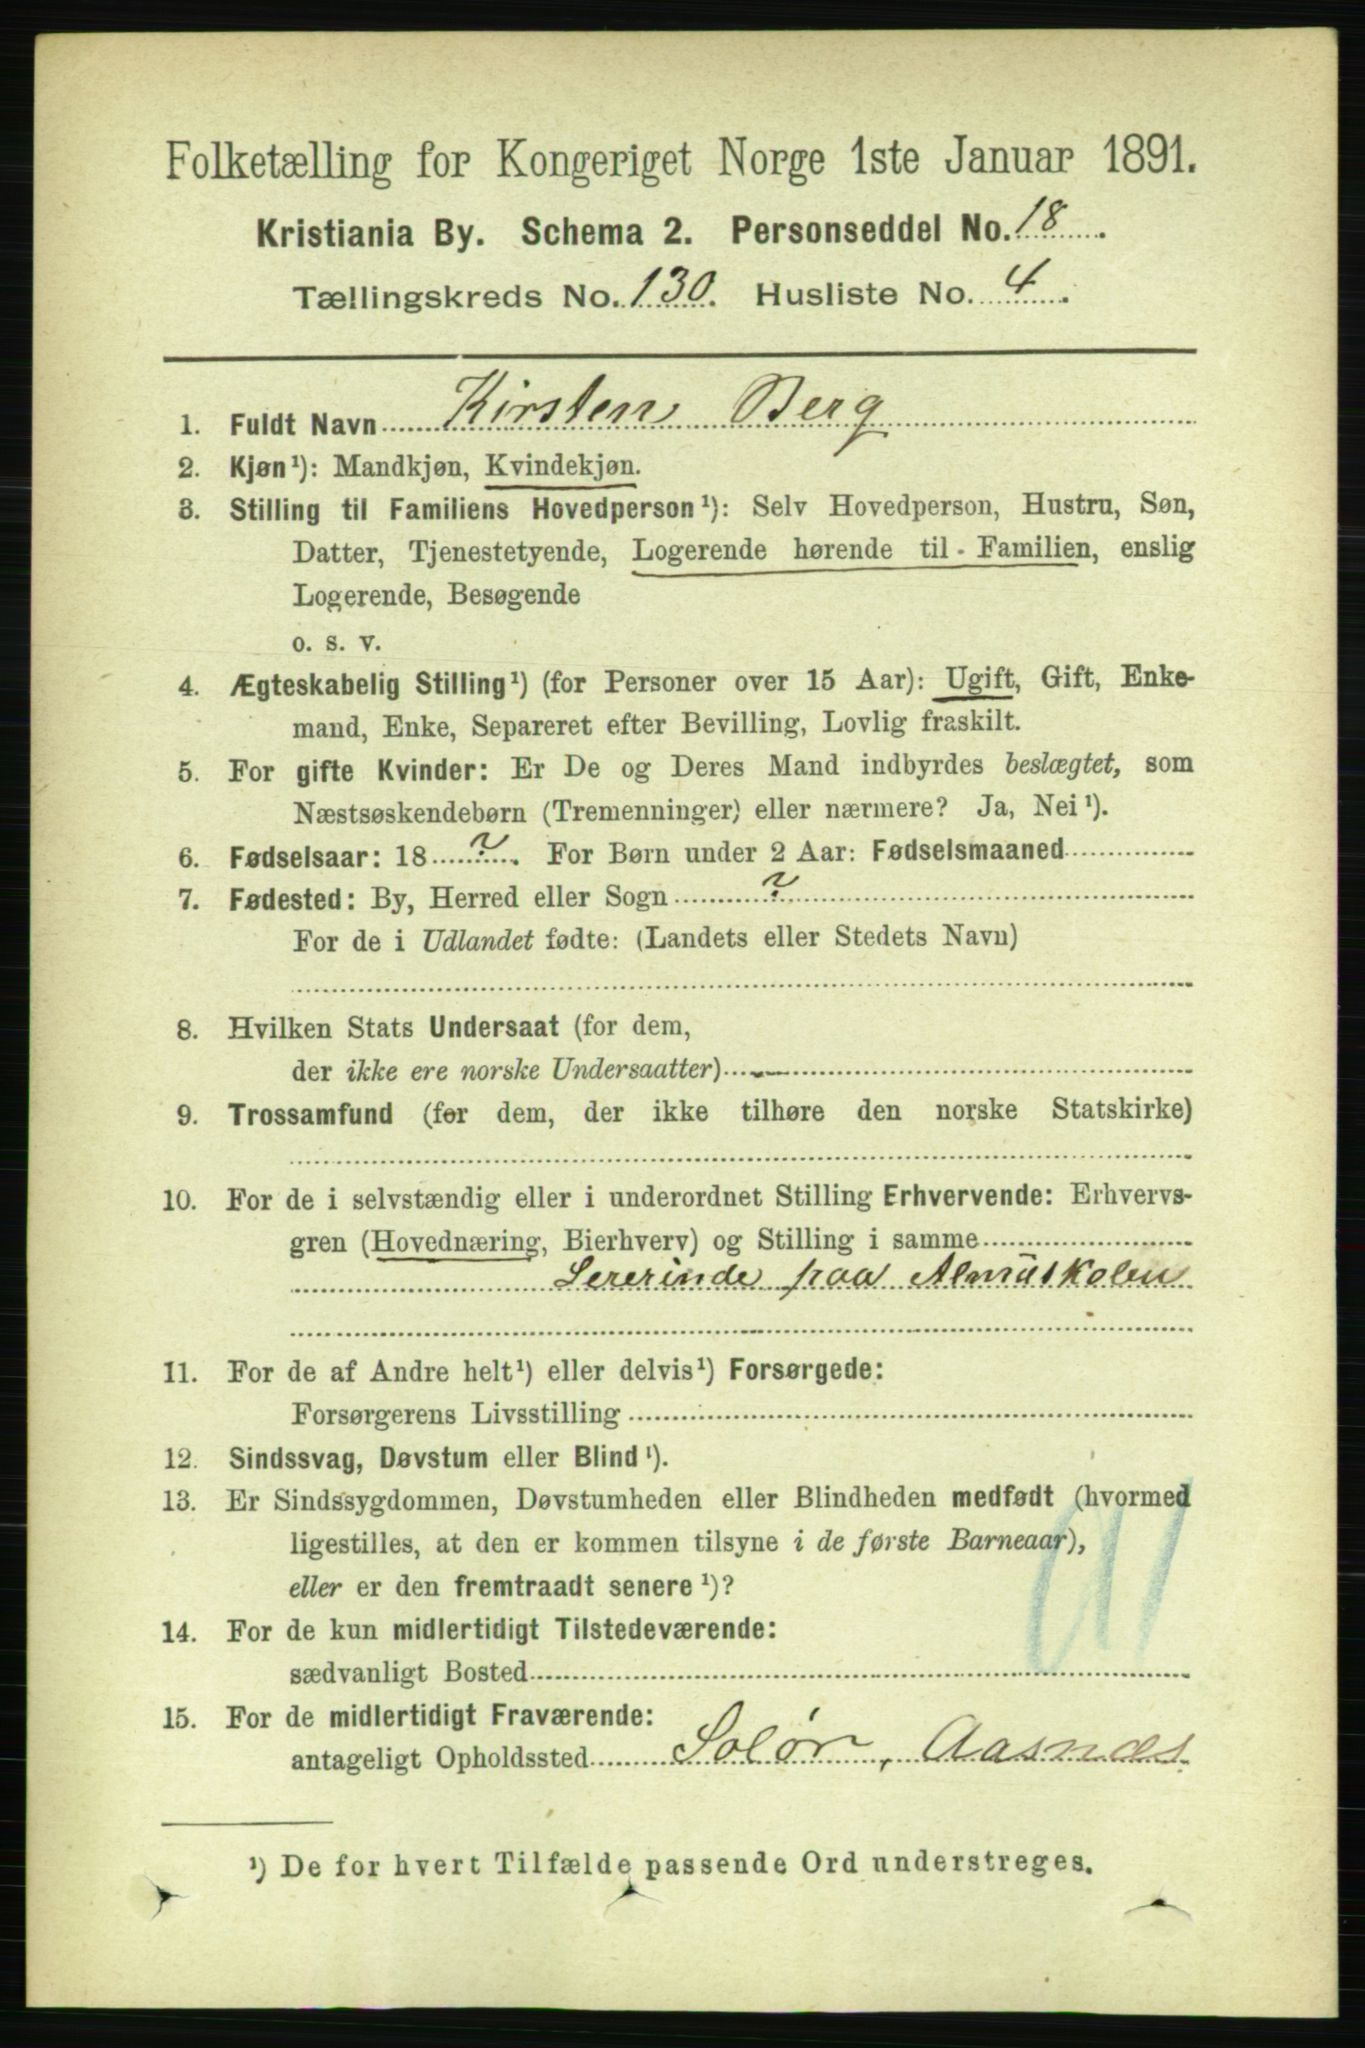 Folketælling for Kongeriget Norge 1ste Januar 1891.
Kristiania By. Schema 2. Personseddel No. 18.
Tællingskreds No. 130. Husliste No. 4.
1. Fuldt Navn Kirsten Berg
2. Kjøn¹): Mandkjøn, Kvindekjøn.
3. Stilling til Familiens Hovedperson¹): Selv Hovedperson, Hustru, Søn,
Datter, Tjenestetyende, Logerende hørende til Familien, enslig
Logerende, Besøgende
o. s. v.
4. Ægteskabelig Stilling¹) (for Personer over 15 Aar): Ugift, Gift, Enke-
mand, Enke, Separeret efter Bevilling, Lovlig fraskilt.
5. For gifte Kvinder: Er De og Deres Mand indbyrdes beslægtet, som
Næstsøskendebørn (Tremenninger) eller nærmere? Ja, Nei¹).
6. Fødselsaar: 18 ?. For Børn under 2 Aar: Fødselsmaaned
7. Fødested: By, Herred eller Sogn ?
For de i Udlandet fødte: (Landets eller Stedets Navn)
8. Hvilken Stats Undersaat (for dem,
der ikke ere norske Undersaatter) —
9. Trossamfund (for dem, der ikke tilhøre den norske Statskirke)
10. For de i selvstændig eller i underordnet Stilling Erhvervende: Erhvervs-
gren (Hovednæring, Bierhverv) og Stilling i samme
Lererinde paa Almuskolen
11. For de af Andre helt¹) eller delvis¹) Forsørgede:
Forsørgerens Livsstilling
12. Sindssvag, Døvstum eller Blind¹).
13. Er Sindssygdommen, Døvstumheden eller Blindheden medfødt (hvormed
ligestilles, at den er kommen tilsyne i de første Barneaar),
eller er den fremtraadt senere¹)?
14. For de kun midlertidigt Tilstedeværende:
sædvanligt Bosted
15. For de midlertidigt Fraværende:
antageligt Opholdssted Solør, Aasnæs.
¹) De for hvert Tilfælde passende Ord understreges.